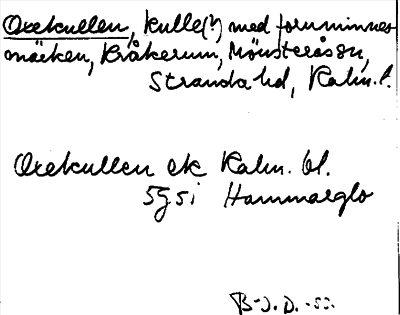 Oxekullen, kulle(?) med fornminnes-
märken, Kråkerum, Mönsterås sn,
Stranda hd, Kalm. l.
Oxekullen ek Kalm. bl.
5g5i Hammarglo
B-J. D. -53.